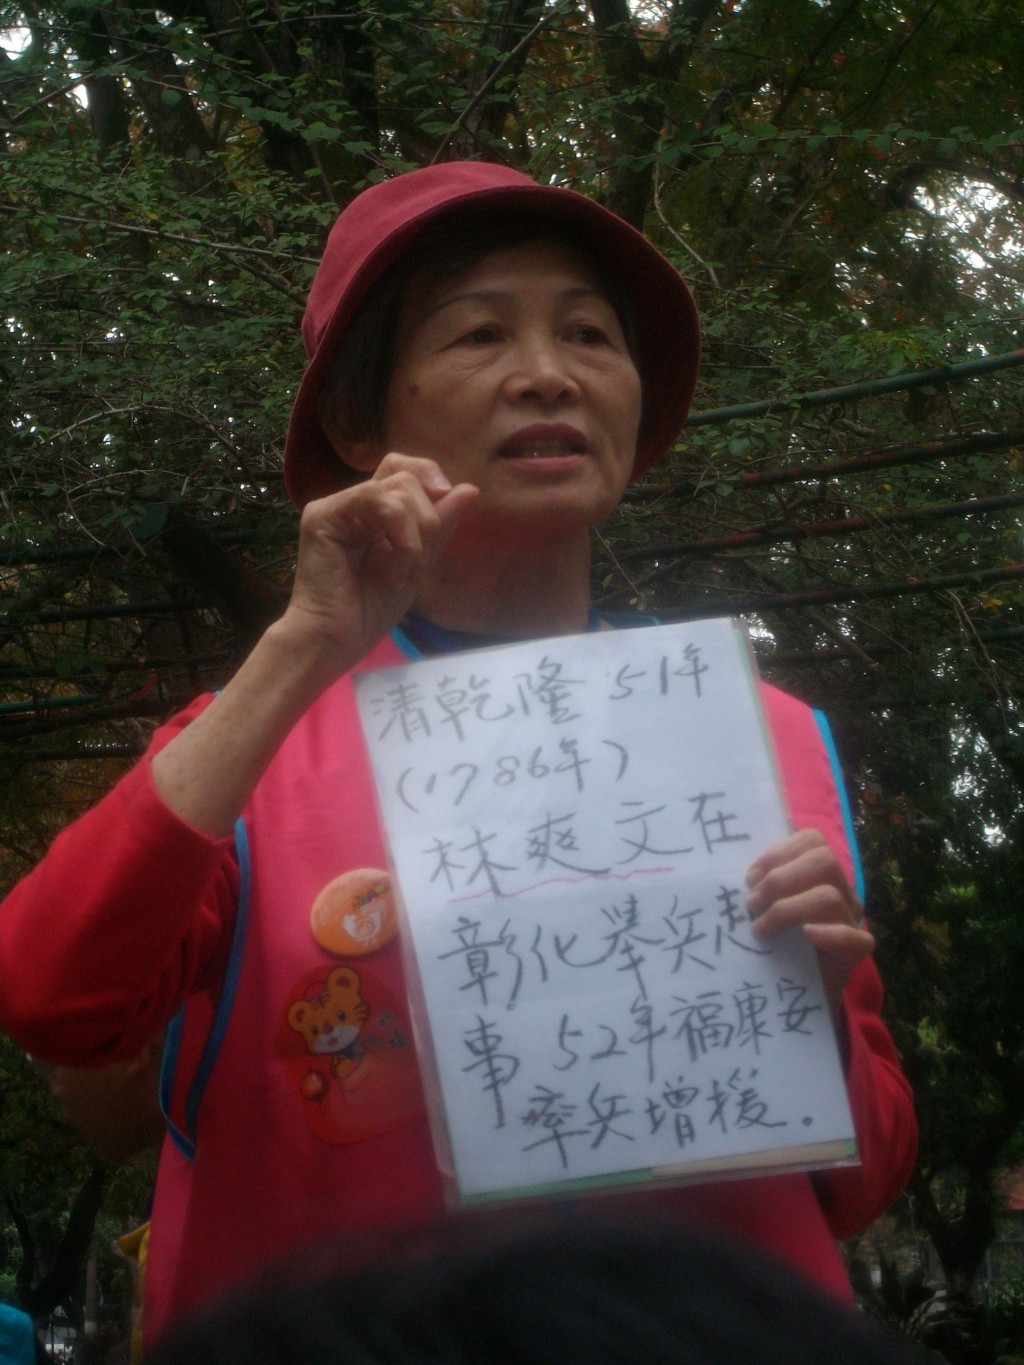 清乾隆51年
(1786年)
林爽文在
彰化舉兵起
事 52年福康安
率兵增援.